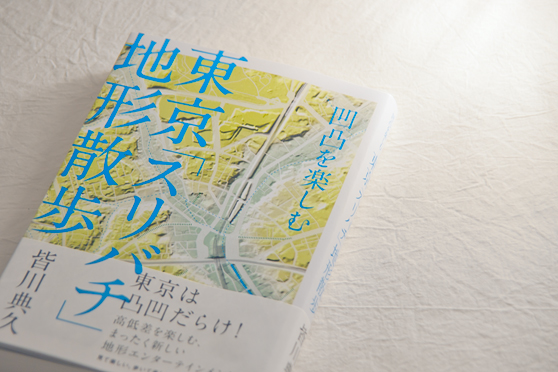 凹凸を楽しむ
東京「スリバチ」
地形散歩
皆川典久
東京は
凸凹だらけ!
高低差を楽しむ、
まったく新しい
地形エンターテイン